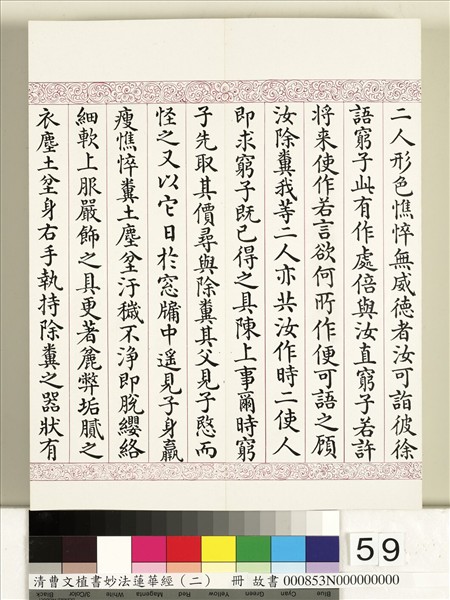 二人形色憔悴無威德者汝可詣彼徐
語窮子此有作處倍與汝直窮子若許
將来使作若言欲何所作便可語之顧
汝除糞我等二人亦共汝作時二使人
即求窮子既已得之具陳上事爾時窮
子先取其價尋與除糞其父見子愍而
怪之又以它日於窓牖中遙見子身羸
瘦憔悴糞土塵坌汙穢不淨即脫纓絡
細軟上服嚴飾之具更著麁弊垢膩之
衣塵土坌身右手執持除糞之器狀有
59
Blue Cyan Green Yellow Red Magenta White 3/Color Black
清曹文植書妙法蓮華經(二) 冊 故書 000853N000000000